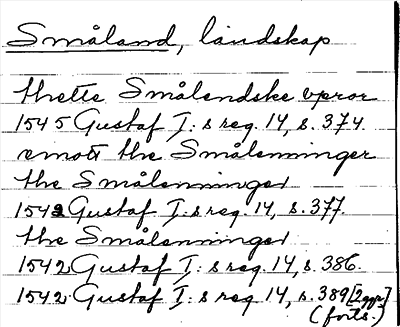 Småland, landskap
thette Smålendske vpror
1545 Gustaf I:s reg. 14, s. 374.
emott the Smålenninger
the Smålenninger
1542 Gustaf I:s reg. 14, s. 377.
the Smålenninger
1542 Gustaf I:s reg. 14, s. 386.
1542 Gustaf I:s reg. 14, s. 389 [2 ggr]
(forts.)